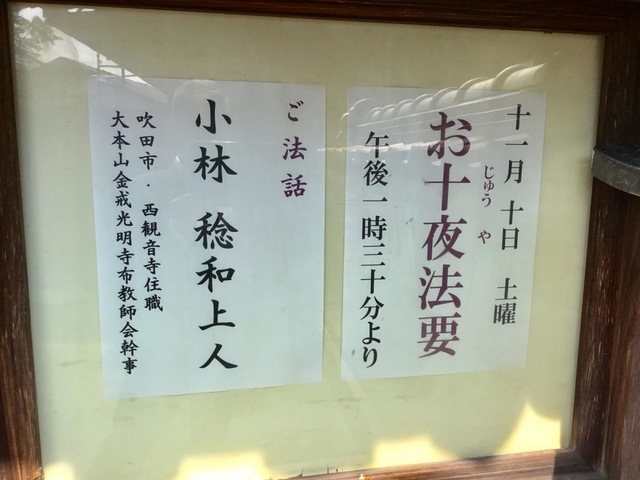 十一月 十日 土曜
お十夜法要
じゅうや
午後一時三十分より
ご法話
小林 稔和上人
吹田市・西観音寺住職
大本山金戒光明寺布教師会幹事